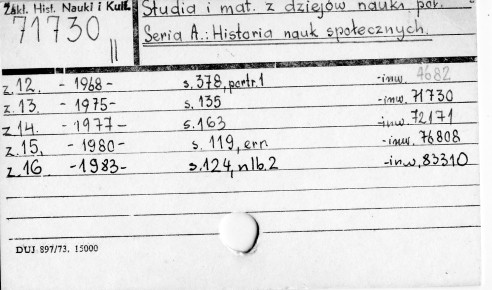 Zakł. Hist. Nauki i Kult.
71730 II
Studia i mat. z dziejów nauki pol.
Seria A.: Historia nauk społecznych.
z.12. - 1968 - s. 378, portr. 1 -inw. 4682
z.13. - 1975 - s. 135 -inw. 71730
z.14. - 1977 - s. 163 -inw. 72171
z.15. - 1980 - s. 119, err. -inw. 76808
z.16 -1983- s. 124, nlb. 2 -inw. 83310
DUJ 897/73. 15000